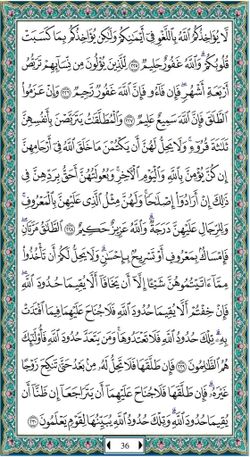 لَّا يُؤَاخِذُكُمُ ٱللَّهُ بِٱللَّغْوِ فِىٓ أَيْمَٰنِكُمْ وَلَٰكِن يُؤَاخِذُكُم بِمَا كَسَبَتْ
قُلُوبُكُمْ ۗ وَٱللَّهُ غَفُورٌ حَلِيمٌ ٢٢٥ لِّلَّذِينَ يُؤْلُونَ مِن نِّسَآئِهِمْ تَرَبُّصُ
أَرْبَعَةِ أَشْهُرٍ ۖ فَإِن فَآءُو فَإِنَّ ٱللَّهَ غَفُورٌ رَّحِيمٌ ٢٢٦ وَإِنْ عَزَمُوا۟
ٱلطَّلَٰقَ فَإِنَّ ٱللَّهَ سَمِيعٌ عَلِيمٌ ٢٢٧ وَٱلْمُطَلَّقَٰتُ يَتَرَبَّصْنَ بِأَنفُسِهِنَّ
ثَلَٰثَةَ قُرُوٓءٍ ۚ وَلَا يَحِلُّ لَهُنَّ أَن يَكْتُمْنَ مَا خَلَقَ ٱللَّهُ فِىٓ أَرْحَامِهِنَّ
إِن كُنَّ يُؤْمِنَّ بِٱللَّهِ وَٱلْيَوْمِ ٱلْءَاخِرِ ۚ وَبُعُولَتُهُنَّ أَحَقُّ بِرَدِّهِنَّ فِى
ذَٰلِكَ إِنْ أَرَادُوٓا۟ إِصْلَٰحًا ۚ وَلَهُنَّ مِثْلُ ٱلَّذِى عَلَيْهِنَّ بِٱلْمَعْرُوفِ ۚ
وَلِلرِّجَالِ عَلَيْهِنَّ دَرَجَةٌ ۗ وَٱللَّهُ عَزِيزٌ حَكِيمٌ ٢٢٨ ٱلطَّلَٰقُ مَرَّتَانِ ۖ
فَإِمْسَاكٌۢ بِمَعْرُوفٍ أَوْ تَسْرِيحٌۢ بِإِحْسَٰنٍ ۗ وَلَا يَحِلُّ لَكُمْ أَن تَأْخُذُوا۟
مِمَّآ ءَاتَيْتُمُوهُنَّ شَيْـًٔا إِلَّآ أَن يَخَافَآ أَلَّا يُقِيمَا حُدُودَ ٱللَّهِ ۖ
فَإِنْ خِفْتُمْ أَلَّا يُقِيمَا حُدُودَ ٱللَّهِ فَلَا جُنَاحَ عَلَيْهِمَا فِيمَا ٱفْتَدَتْ
بِهِۦ ۗ تِلْكَ حُدُودُ ٱللَّهِ فَلَا تَعْتَدُوهَا ۚ وَمَن يَتَعَدَّ حُدُودَ ٱللَّهِ فَأُو۟لَٰٓئِكَ
هُمُ ٱلظَّٰلِمُونَ ٢٢٩ فَإِن طَلَّقَهَا فَلَا تَحِلُّ لَهُۥ مِنۢ بَعْدُ حَتَّىٰ تَنكِحَ زَوْجًا
غَيْرَهُۥ ۗ فَإِن طَلَّقَهَا فَلَا جُنَاحَ عَلَيْهِمَآ أَن يَتَرَاجَعَآ إِن ظَنَّآ أَن
يُقِيمَا حُدُودَ ٱللَّهِ ۗ وَتِلْكَ حُدُودُ ٱللَّهِ يُبَيِّنُهَا لِقَوْمٍ يَعْلَمُونَ ٢٣٠
36